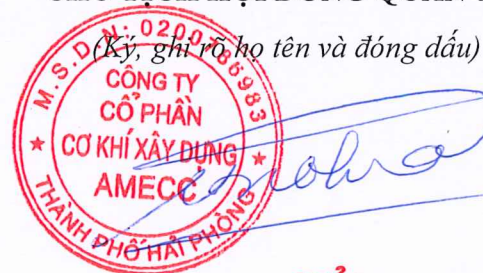 (Ký, ghi rõ họ tên và đóng dấu)
M.S.D.N: 0200
6983
CÔNG TY
CỔ PHẦN
CƠ KHÍ XÂY DỰNG
AMECC
THÀNH PHỐ HẢI PHÒNG